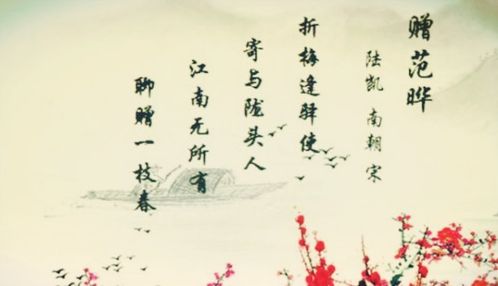 赠范晔
陆凯 南朝 宋
折梅逢驿使
寄与陇头人
江南无所有
聊赠一枝春